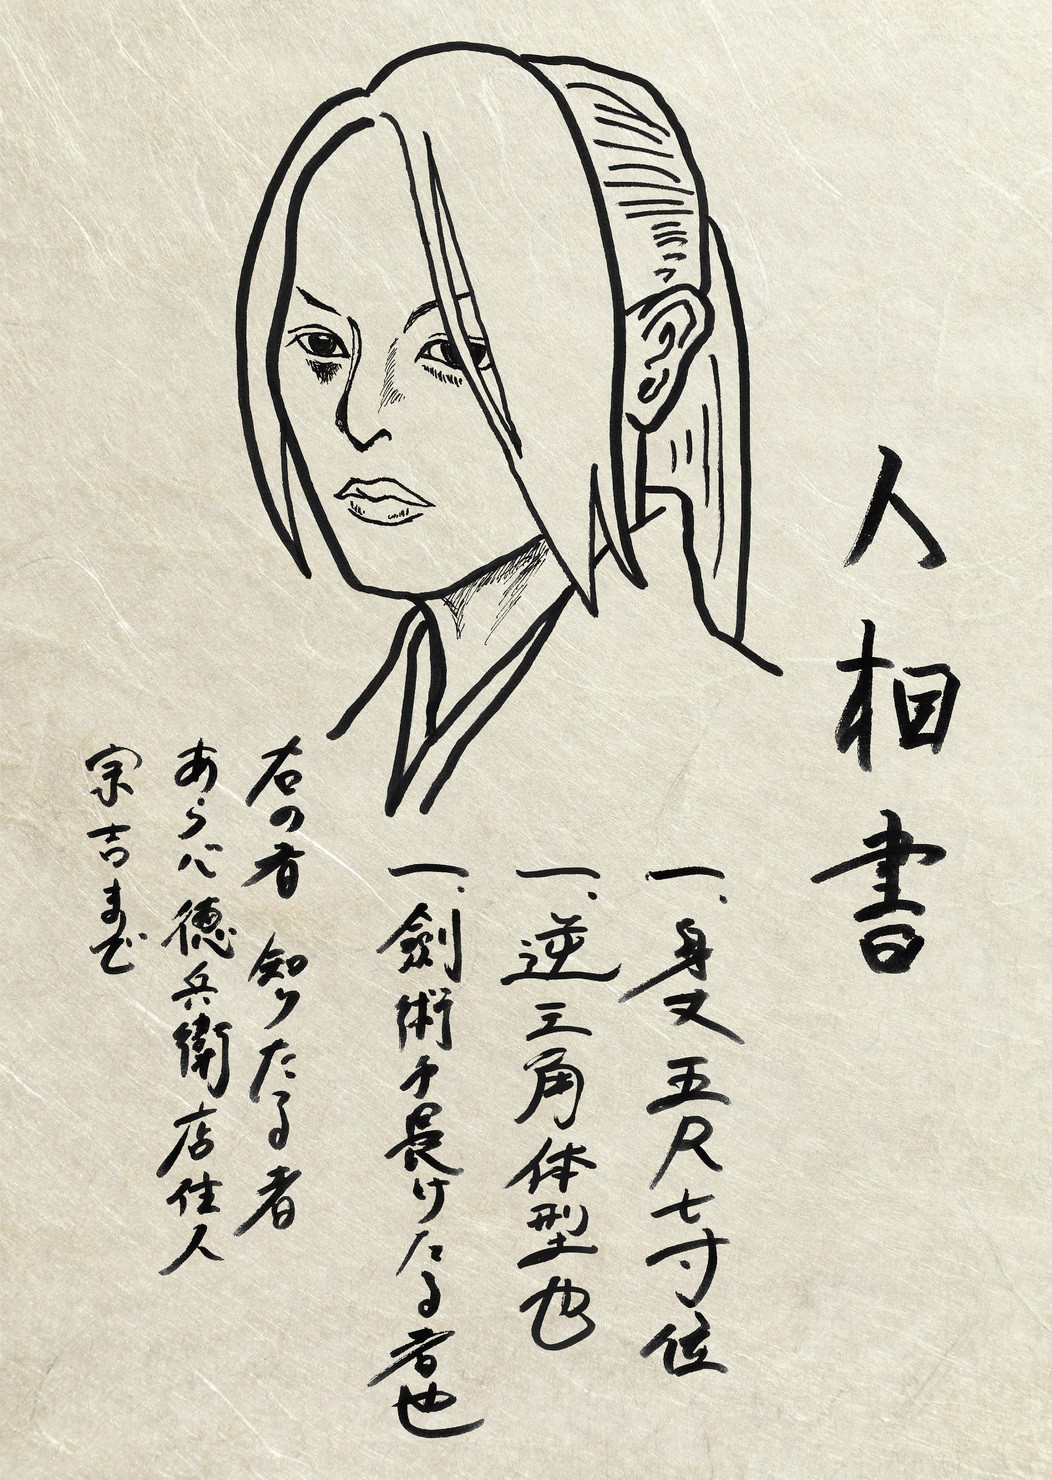 人相書
一、身丈五尺七寸位
一、逆三角体型也
一、劍術ヲ長けたる者也
右の者 知りたる者
あらバ徳兵衛店住人
宗吉まで